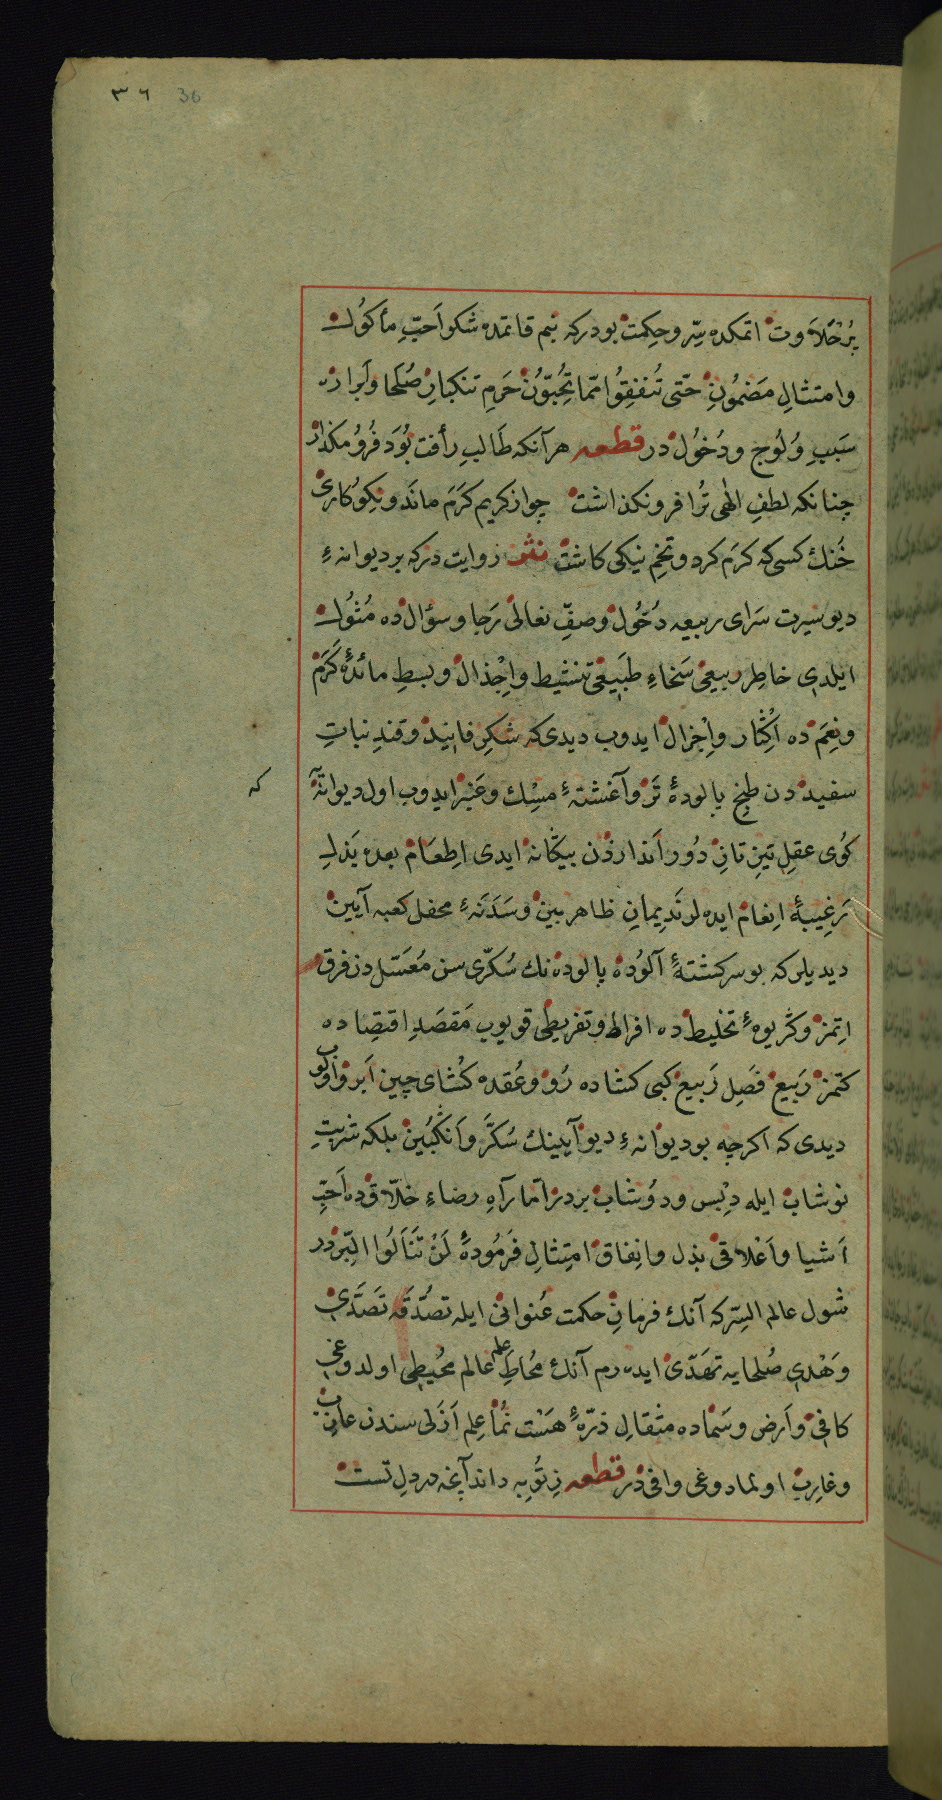 ٣٦ 36
پُرْحَلاَوت اتمكده سِرّ و حِكمت بودركه بنم قاتمده شكر اَحبّ مأكوُلدر
وامتثالِ مَضموُنِ حَتّى تُنفِقُوا مِمّا تُحِبّوُن حَرمِ تنكبارِ صُلَحا واَبرارده
سَببِ وُلُوج ودُخُولدر قطعه هر آنكه طَالبِ رأفت بُوَد فُرُو مكذار
چنانكه لطفِ الٰهى تُرا فرو نكذاشت چو از كريم كَرَم ماند و نِكوُكارى
خُنك كسى كه كرَم كرد و تخمِ نيكى كاشت نثر روايت دركه بر ديوانهٔ
ديو سيرت سَراى ربيعه دُخُول وصفِّ نعالى رَجا و سؤالده مُثُول
ايلدى خاطِر ربيعى سَخاءِ طبَيعى تنشيط واِجْذال و بسطِ مائدهٔ كَرَم
ونِعَم ده اِكْثار واِجْزال ايدوب ديدى كه شكرِ فانيذ و قندِ نباتِ
سفيد دن طبخِ پالودهٔ تَر و آغشتهٔ مسِْك وعَنْبَر ايدوب اول ديوانهٔ
كه
كوُى عقلِ تيزِ تانِ دُور انداردن بيكانه ايدى اِطعَام بعده يَذلِ
تَرغيبهٔ اِنعَام ايده لر نَديمانِ ظاهر بين و سَدَنهٔ محفل كعبه آيين
ديديلر كه بو سركشتهٔ آلوُده پالوده نك سُكّرى سن مُعَسّل دن فرق
اتِمز و كريوهٔ تخليط ده افراط و تفريطى قويوب مَقصَدِ اقتِصاده
كتمز رَبيع فصَلِ رَبيع كبى كشاده رُو و عُقده كُشاى چين اَبرو اولوب
ديدى كه اكرچه بو ديوانهٔ ديو آيينك سُكّر و اَنكبُين بلكه شربتِ
نوشاب ايله دِبْس و دوُشاب بردر اَمّا راهِ رضاءِ خلّاقده اَحَبِّ
اَشيا و اَغلاقى بذل و انِفاق امتِثالِ فرَموُدهٔ لَنْ تَنَالُوا الْبِرّ در
شول عالم السِرّ كه آنك فرمانِ حكمت عُنوانى ايله تصُّدّقه تَصَدّى
وَهْدىِ صُلحايه تهَدّى ايده رم آنك مُحاطِ علم عالم محُيطى اولدوغى
كافى و اَرض و سَماده مثقالِ ذرّهٔ هَسْت نُما عِلم اَزَلى سندن عازب
و غارِب اولمادوغى وافى در قطعه نِتُوبه داند آنچه در دلِ تست